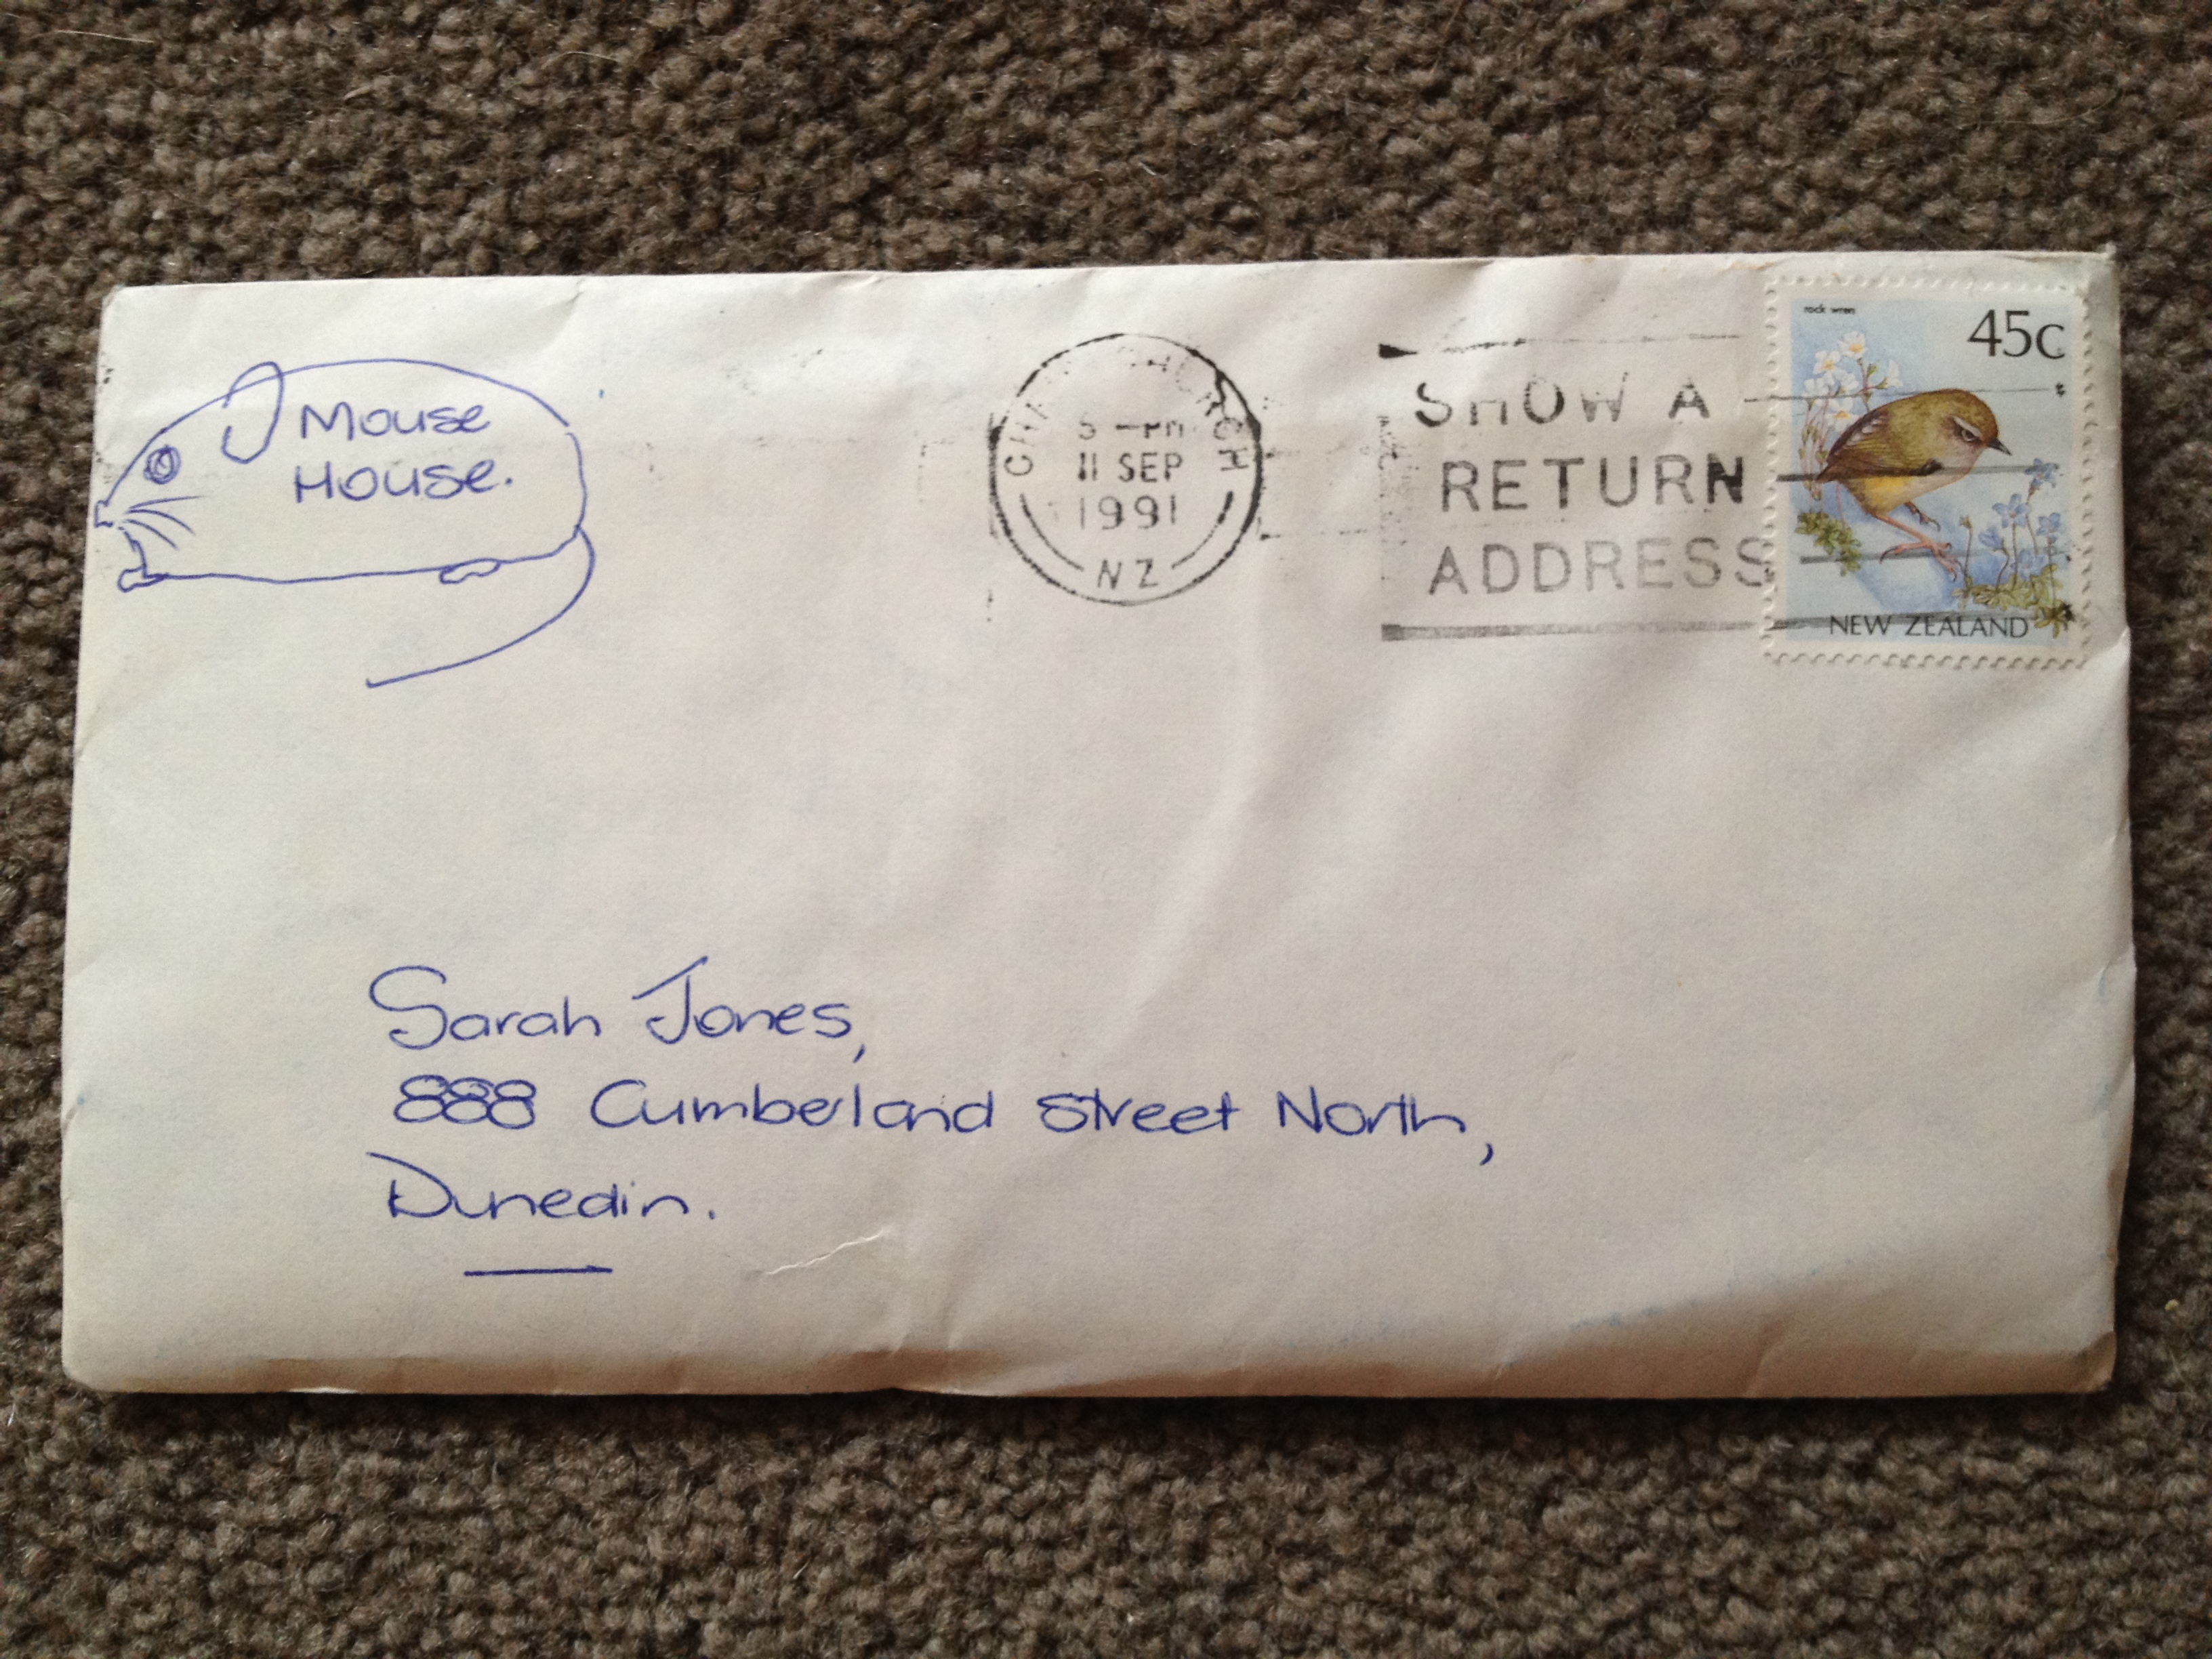 Mouse
House.
CHRISTCHURCH
5 -PM
11 SEP
1991
NZ
SHOW A
RETURN
ADDRESS
rock wren
45c
NEW ZEALAND
Sarah Jones,
888 Cumberland Street North,
Dunedin.